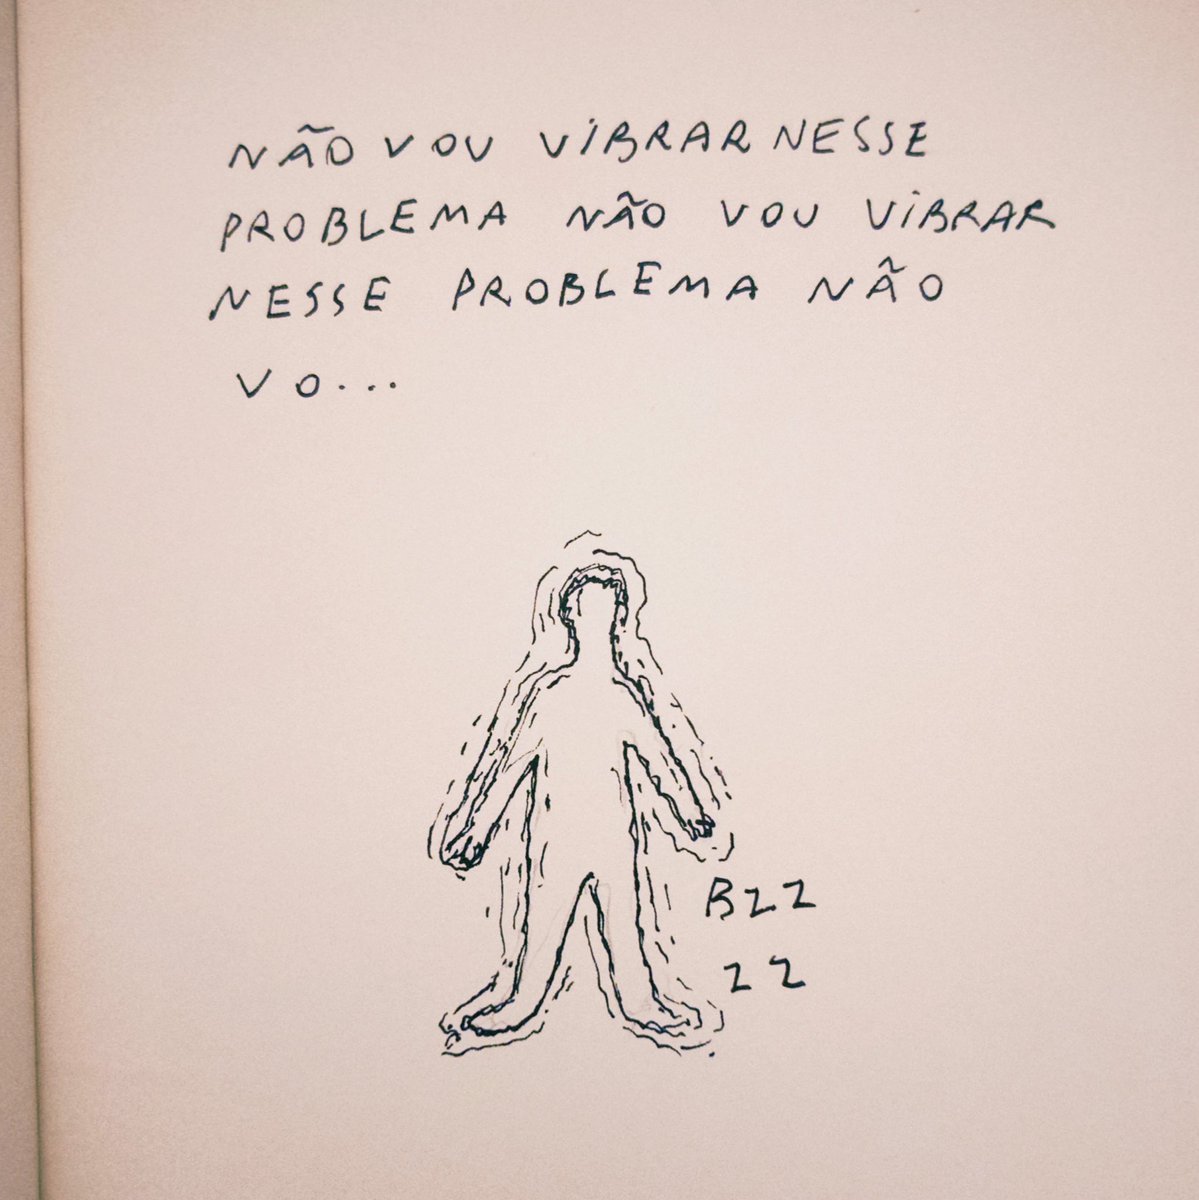 NÃO VOU VIBRAR NESSE
PROBLEMA NÃO VOU VIBRAR
NESSE PROBLEMA NÃO
VO...
BZZ
ZZ